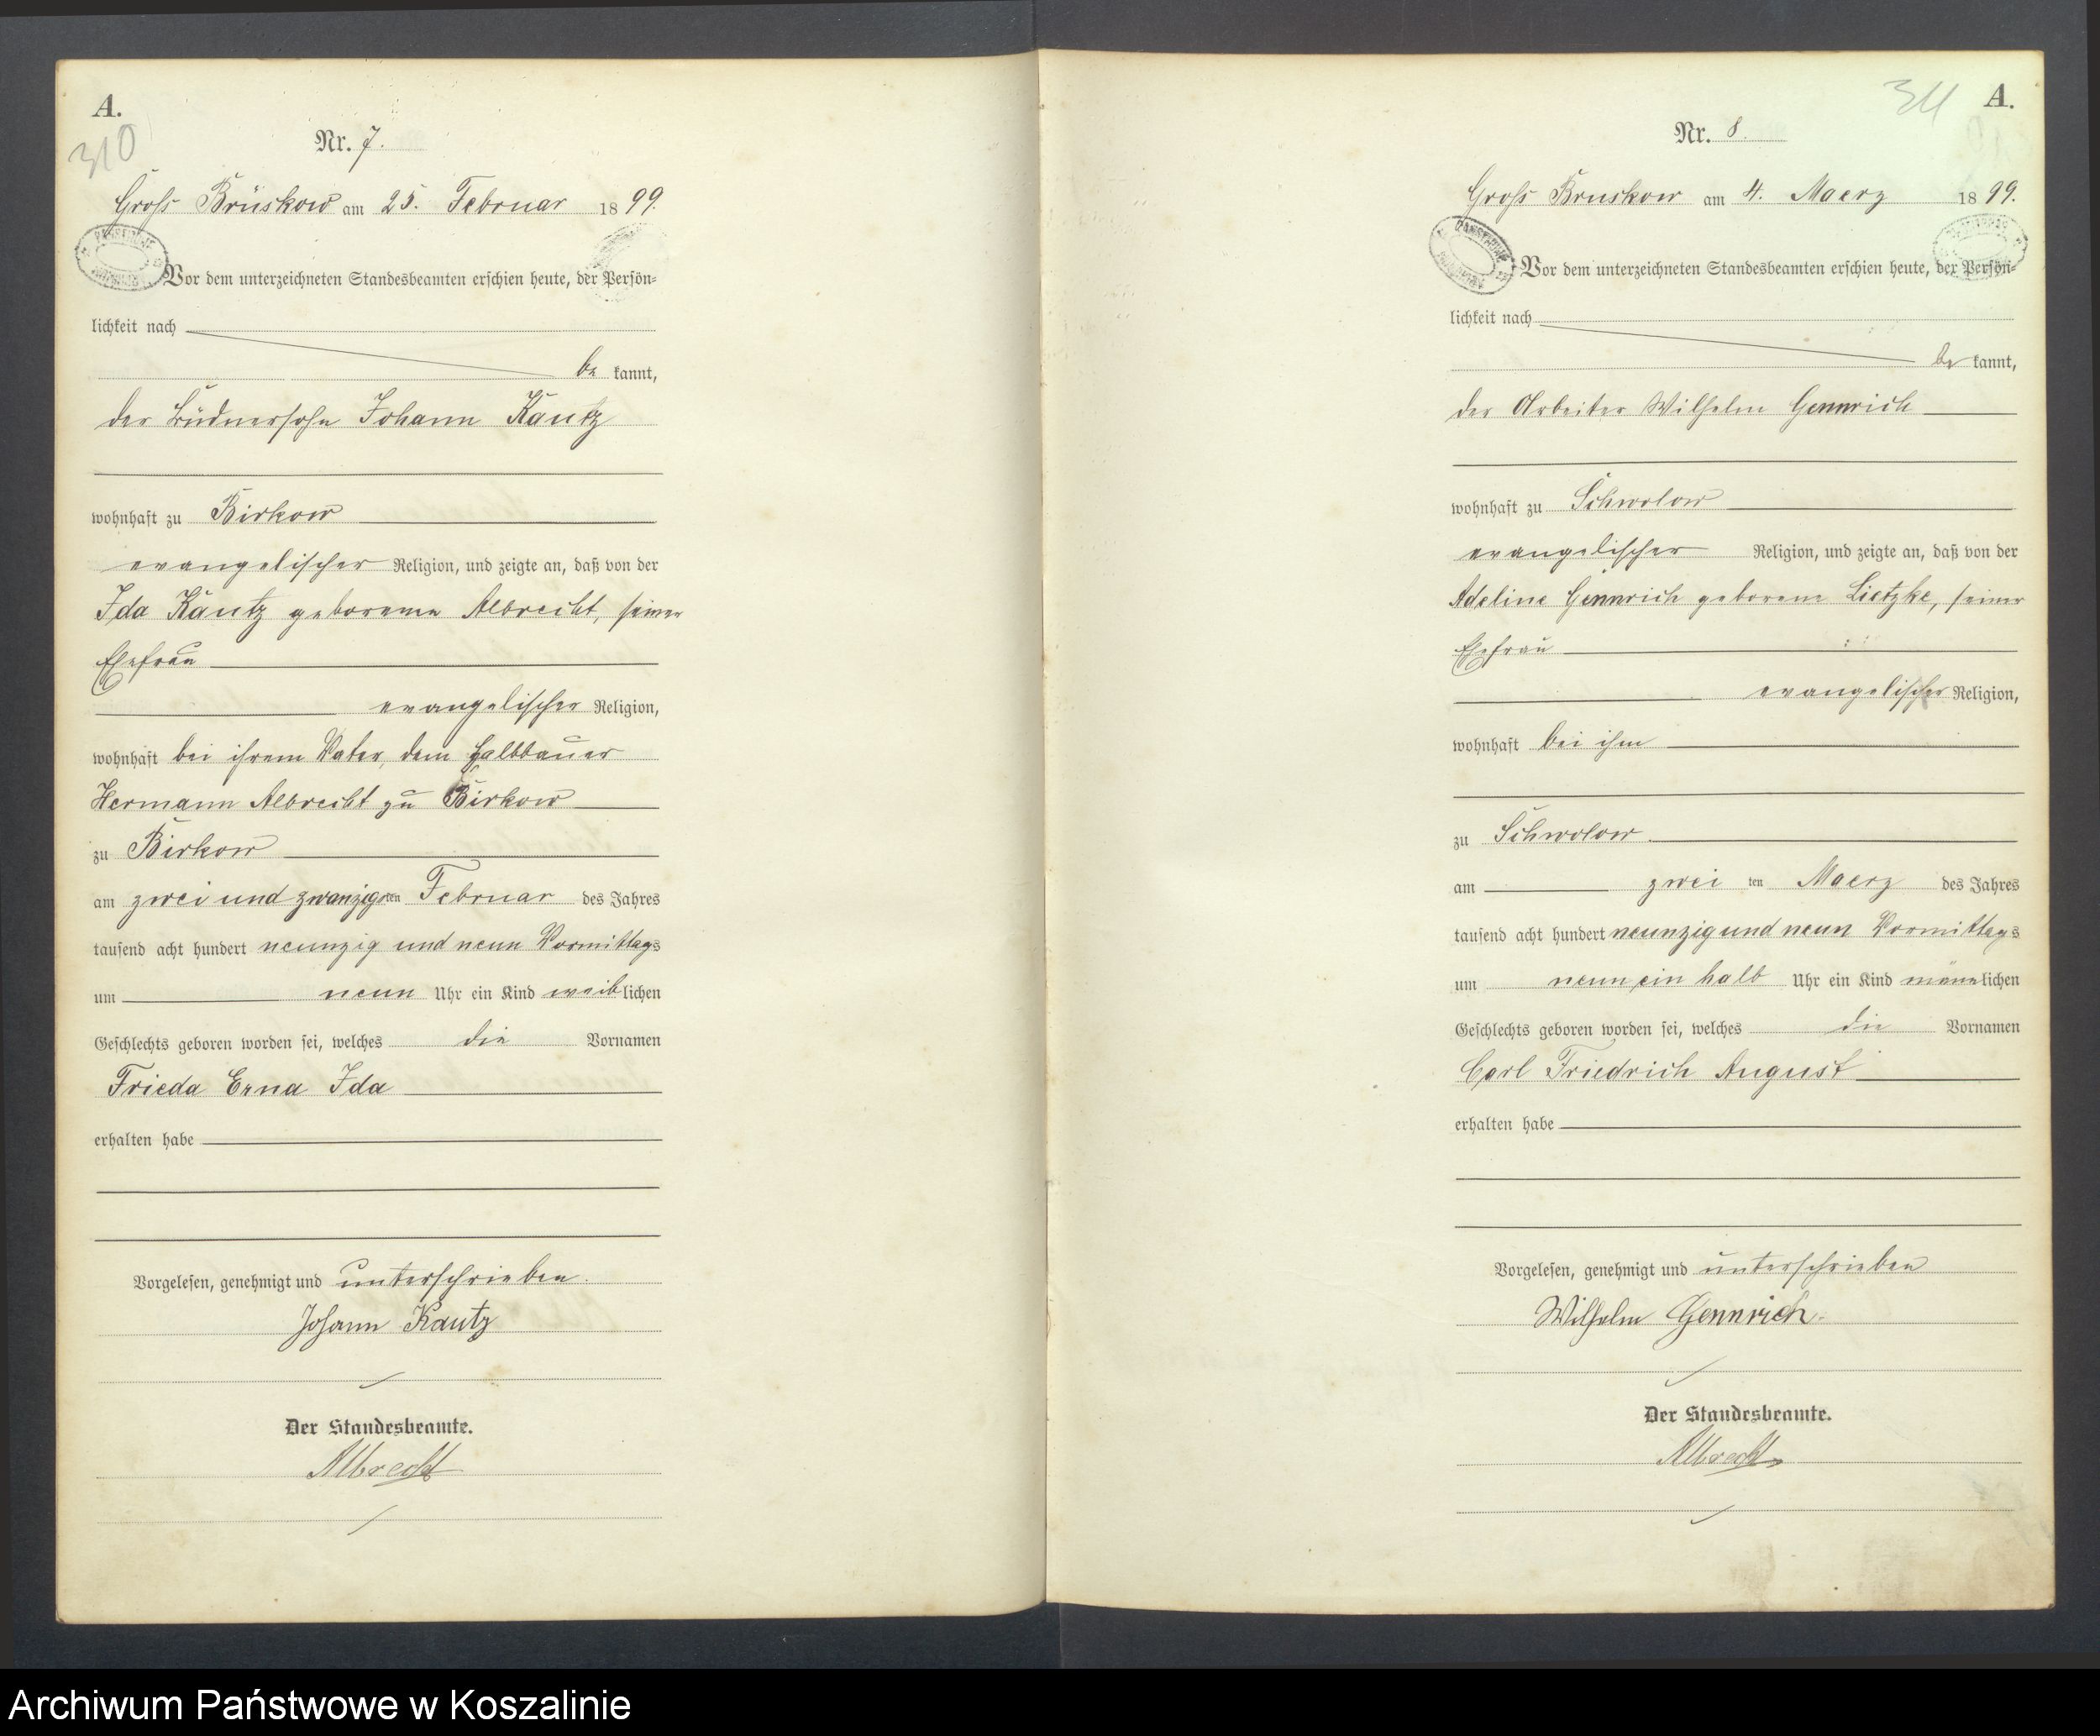 A.
310
Nr. 7.
Gross Brüskow am 25. Februar 1899.
Vor dem unterzeichneten Standesbeamten erschien heute, der Persön-
lichkeit nach
be kannt,
der Büdnersohn Johann Kautz
wohnhaft zu Birkow
evangelischer Religion, und zeigte an, daß von der
Ida Kautz geborenen Albrecht, seiner
Ehefrau
evangelischer Religion,
wohnhaft bei ihrem Vater, dem Halbbauer
Hermann Albrecht zu Birkow
zu Birkow
am zwei und zwanzigsten Februar des Jahres
tausend acht hundert neunzig und neun Vormittags
um neun Uhr ein Kind weiblichen
Geschlechts geboren worden sei, welches die Vornamen
Frieda Erna Ida
erhalten habe
Vorgelesen, genehmigt und unterschrieben.
Johann Kautz
Der Standesbeamte.
Albrecht
311
A.
Nr. 8.
Gross Bruskow am 4. Maerz 1899.
Vor dem unterzeichneten Standesbeamten erschien heute, der Persön-
lichkeit nach
be kannt,
der Arbeiter Wilhelm Gennrich
wohnhaft zu Schwolow
evangelischer Religion, und zeigte an, daß von der
Adeline Gennrich geborene Lietzke, seiner
Ehefrau
evangelischer Religion,
wohnhaft bei ihm
zu Schwolow.
am zwei ten Maerz des Jahres
tausend acht hundert neunzig und neun Vormittags
um neun ein halb Uhr ein Kind männlichen
Geschlechts geboren worden sei, welches die Vornamen
Carl Friedrich August
erhalten habe
Vorgelesen, genehmigt und unterschrieben
Wilhelm Gennrich.
Der Standesbeamte.
Albrecht
Archiwum Państwowe w Koszalinie